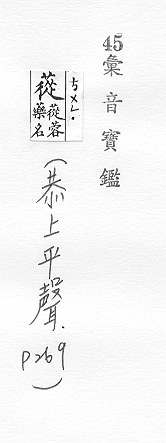 45彙音寶鑑
ㄘㄨㄥ。
蓯
蓯蓉
藥名
(恭上平聲.
P269)